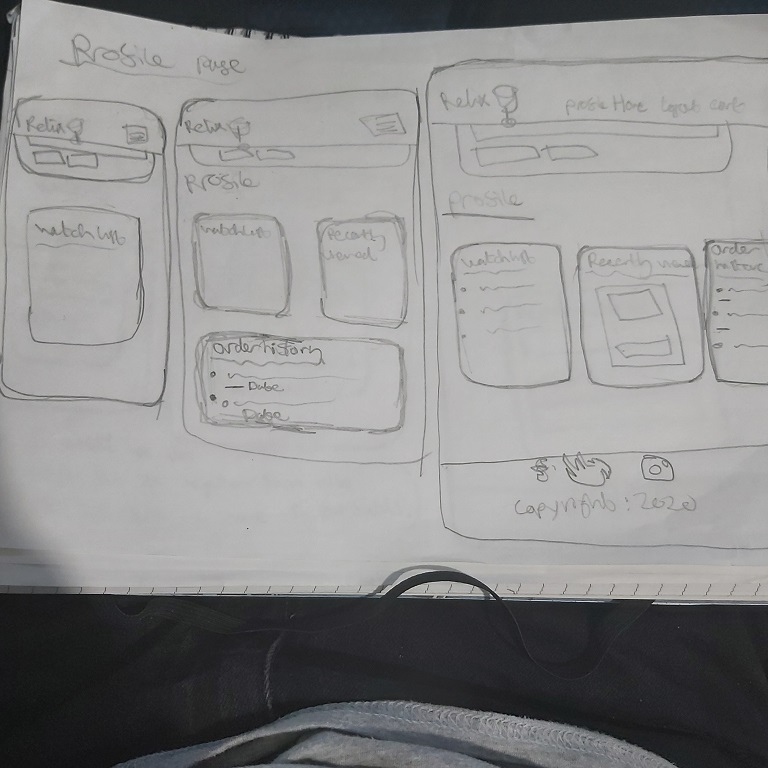 Profile page
Relix
watchlist
Relix
Profile
watchlist
Recently
viewed
order history
Date
Date
Relix
profile Home logout cart
profile
watchlist
Recently view
order
copyright : 2020